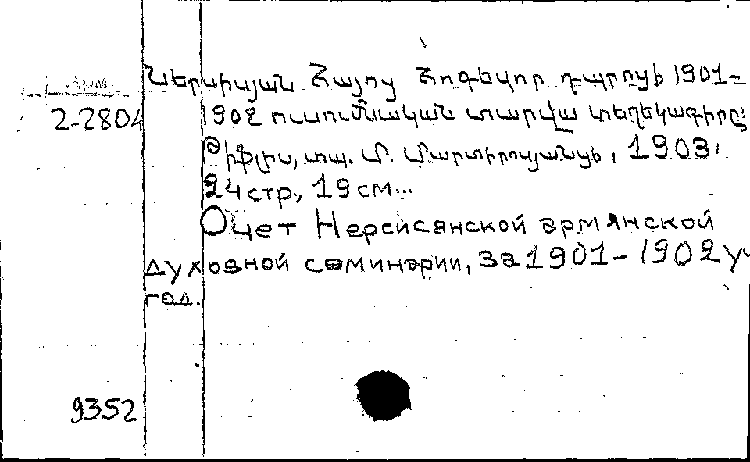 Ներսիսյան Հայոց Հոգեվոր դպրոցի 1901-
2-2804
1902 ուսումնական տարվա տեղեկագիրը
Թիֆլիս, տպ. Մ. Մարտիրոսյանցի, 1903.
24 стр., 19 см...
Очет Нерсисянской армянской
духовной семинарии, за 1901-1902 уч
год.
9352